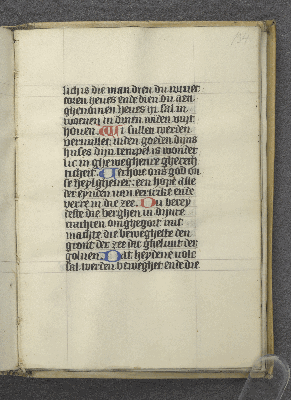 lich is die man dien du wtuer
coren heues ende dien du aen
ghenomen heues hi sal in
woenen in dinen uiden vurt
houen. Wi sullen werden
veruullet inden goeden dijns
huses dijn tempel is wonder
lic in ghewegheure gherech
ticheit. Uerhoir ons god on
se heylgheuer: een hope alle
der eynden van eertrike ende
verre in die zee. Du berey
deste die berghen in dijnre
crachten omghegort mit
machte die beweghelste den
gront der zee dat gheluut der
golnen. Dat heydene uolc
sal werden beweghet ende die